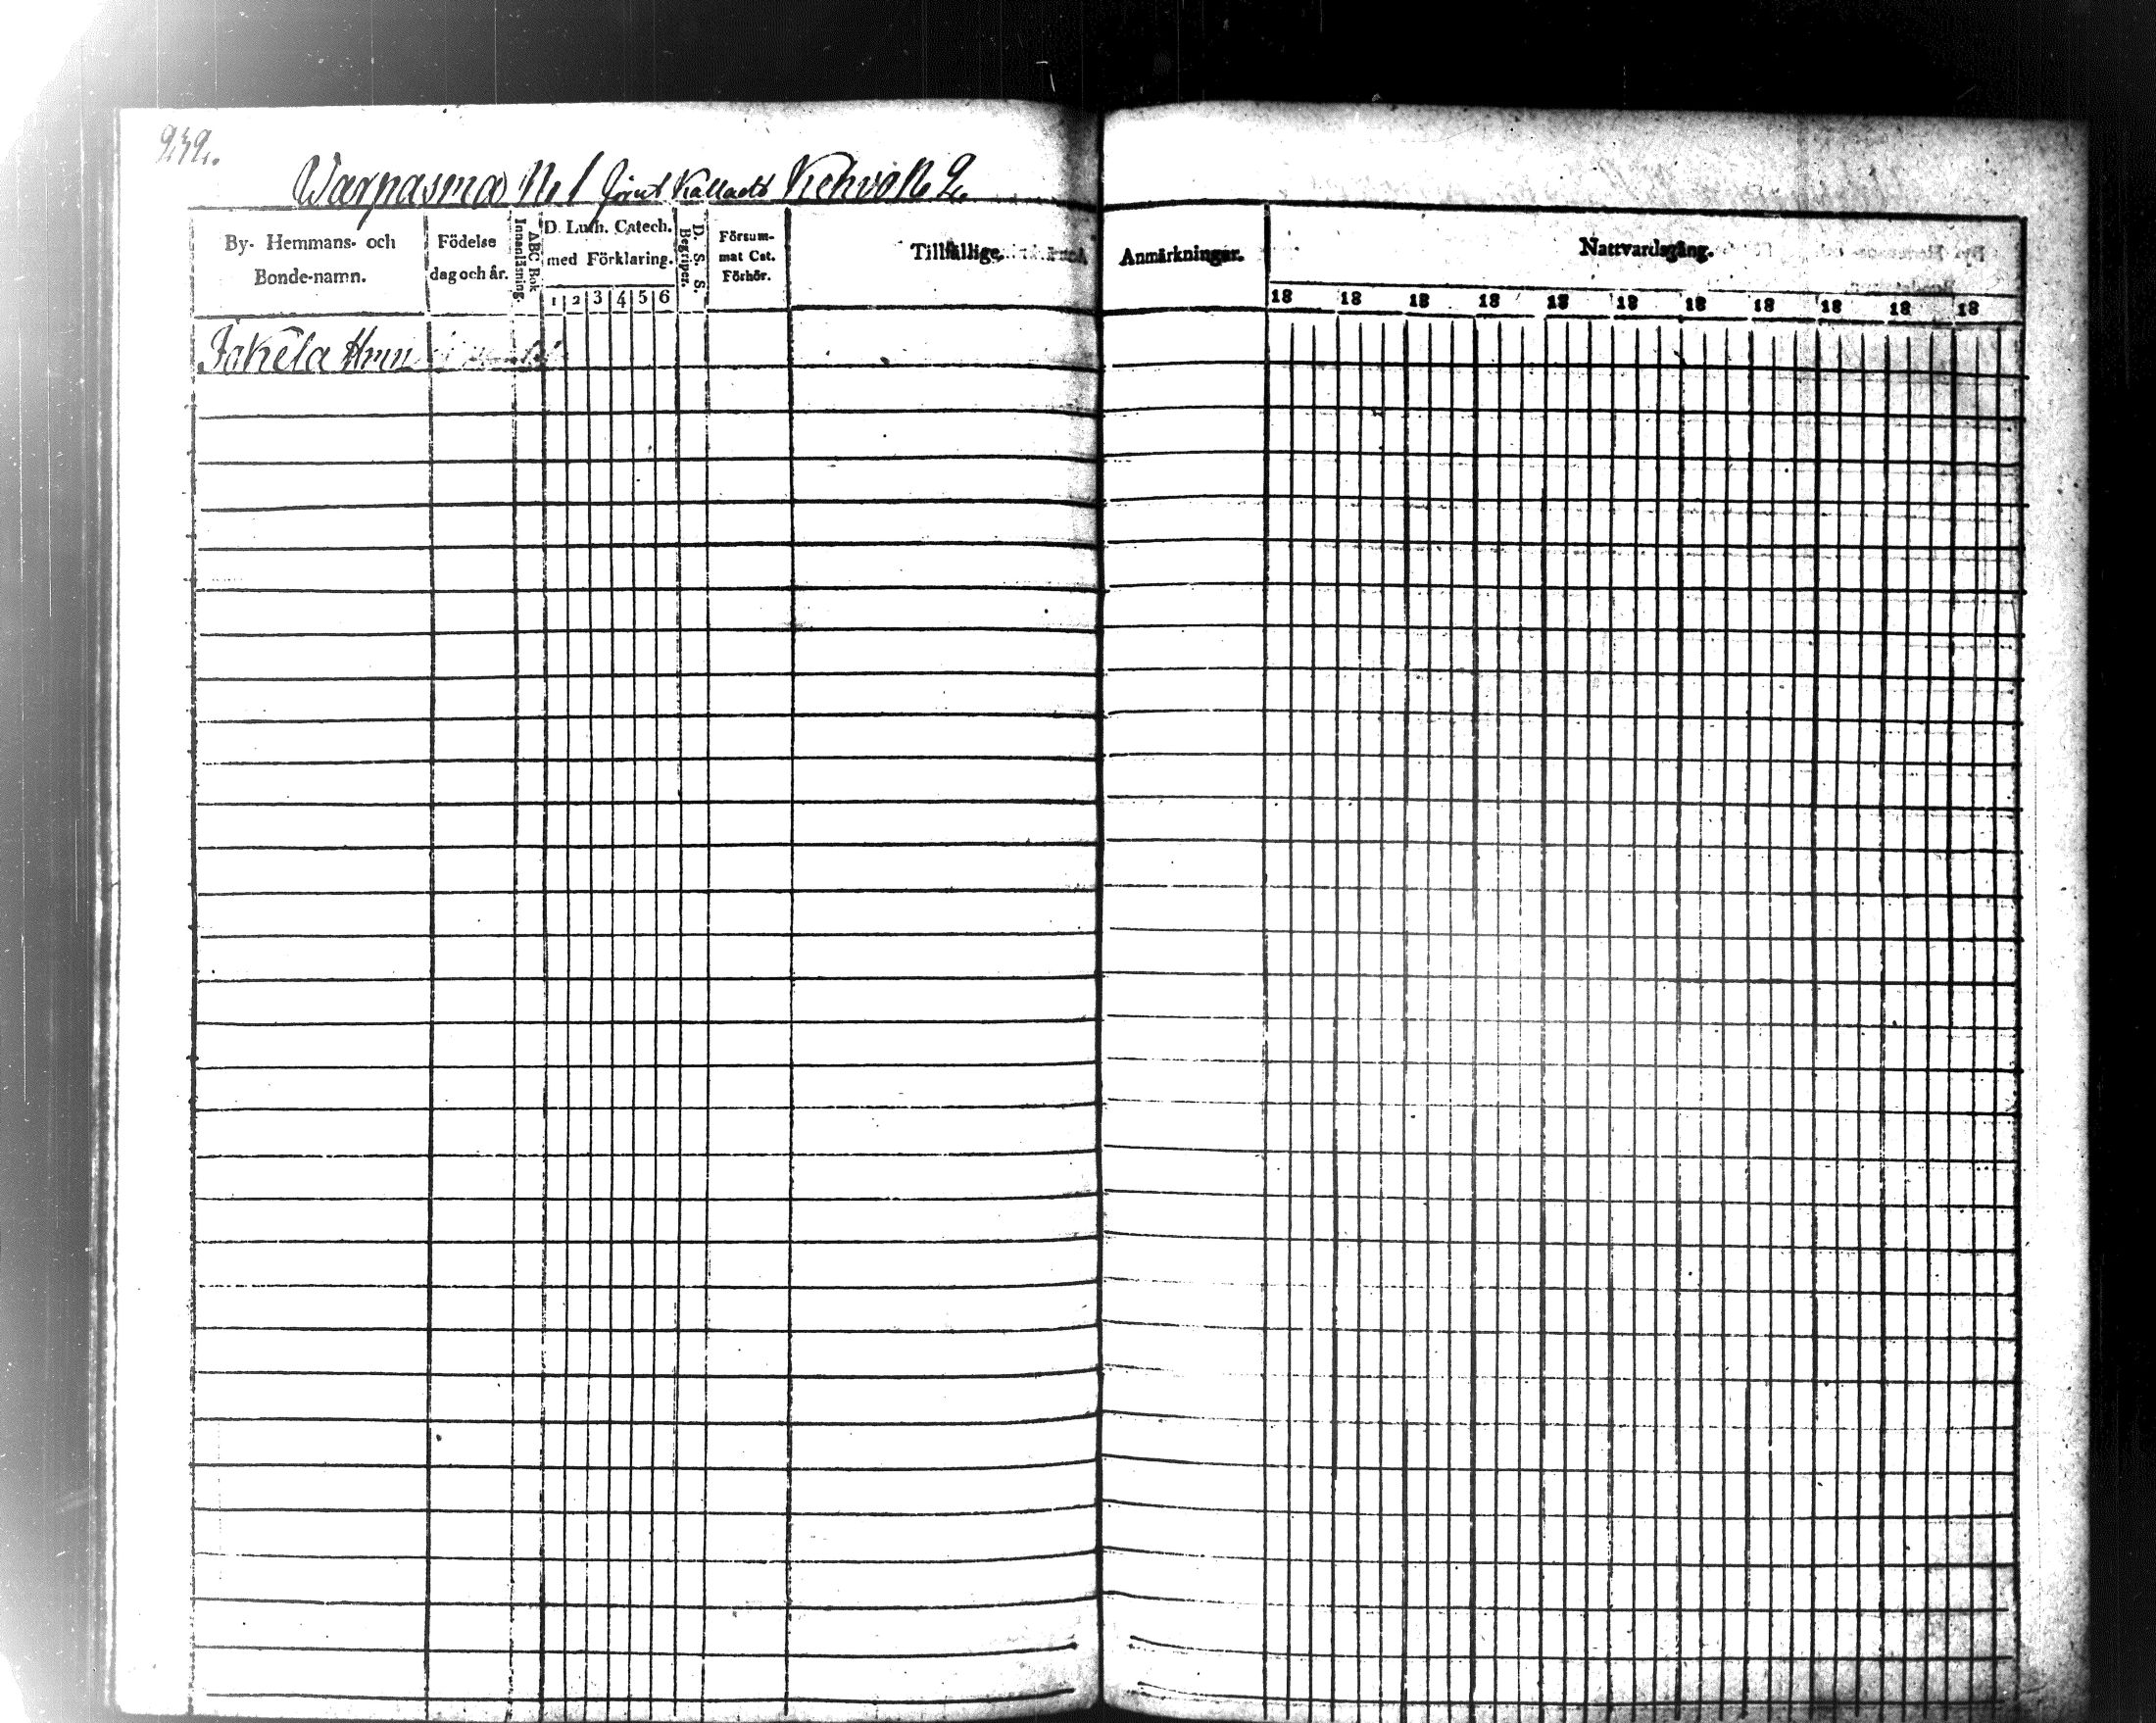 232.
Warpasma No 1 förut kallad Kehvo No 2.
By- Hemmans- och
Bonde-namn.
Födelse
dag och år.
Innanläsning
ABC Bok
D. Luth. Catech.
med Förklaring.
1 2 3 4 5 6
Begriper.
D. S. S.
Försum-
mat Cat.
Förhör.
Tillfällige.
Anmärkningar.
Nattvardsgång.
18 18 18 18 18 18 18 18 18 18 18
Jokela Hmn